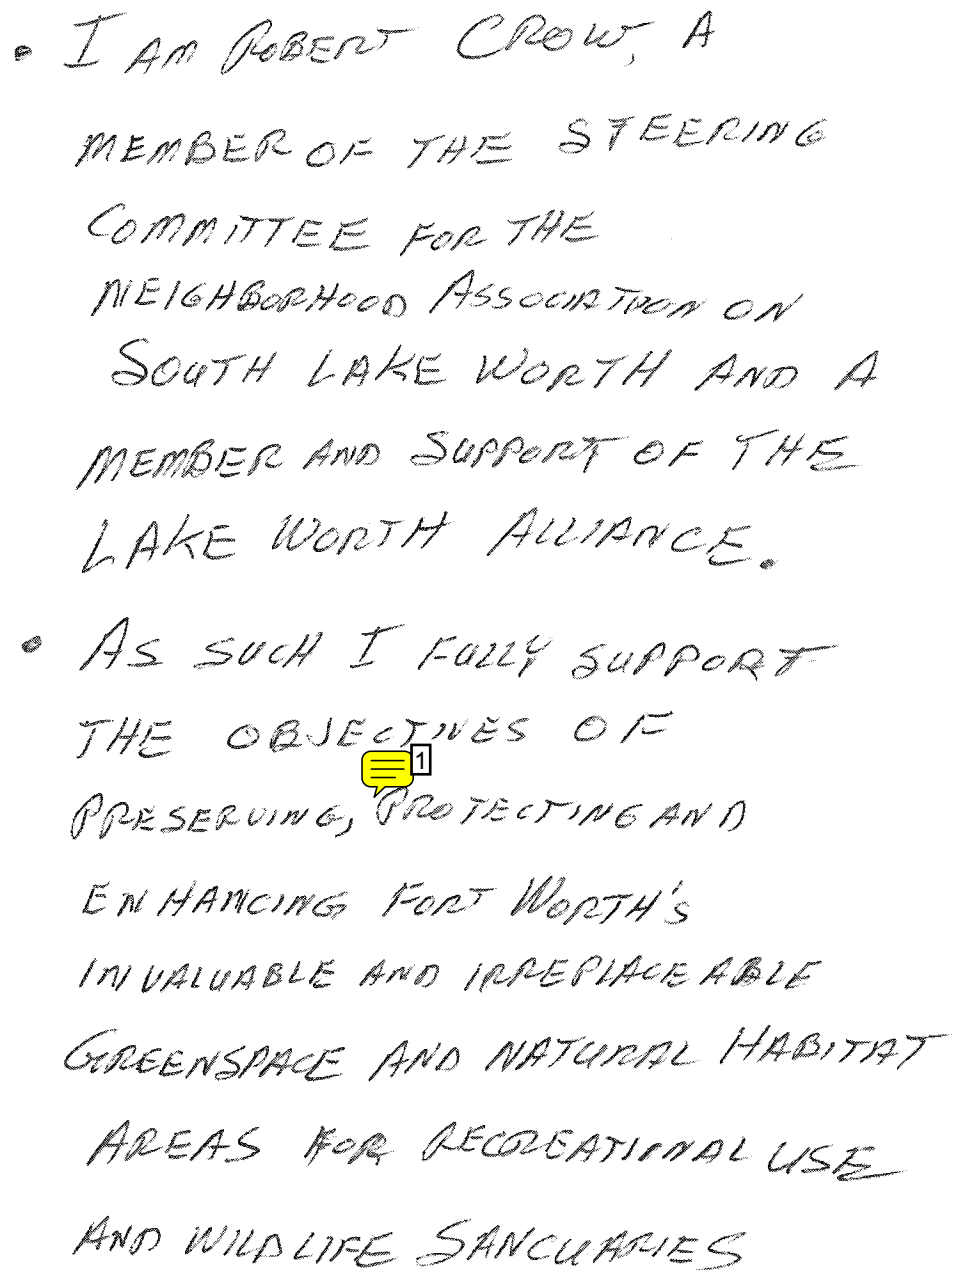 • I AM ROBERT CROW, A
MEMBER OF THE STEERING
COMMITTEE FOR THE
NEIGHBORHOOD ASSOCIATION ON
SOUTH LAKE WORTH AND A
MEMBER AND SUPPORT OF THE
LAKE WORTH ALLIANCE.
• AS SUCH I FULLY SUPPORT
THE OBJECTIVES OF
1
PRESERVING, PROTECTING AND
ENHANCING FORT WORTH'S
INVALUABLE AND IRREPLACEABLE
GREENSPACE AND NATURAL HABITAT
AREAS FOR RECREATIONAL USE
AND WILDLIFE SANCUARIES